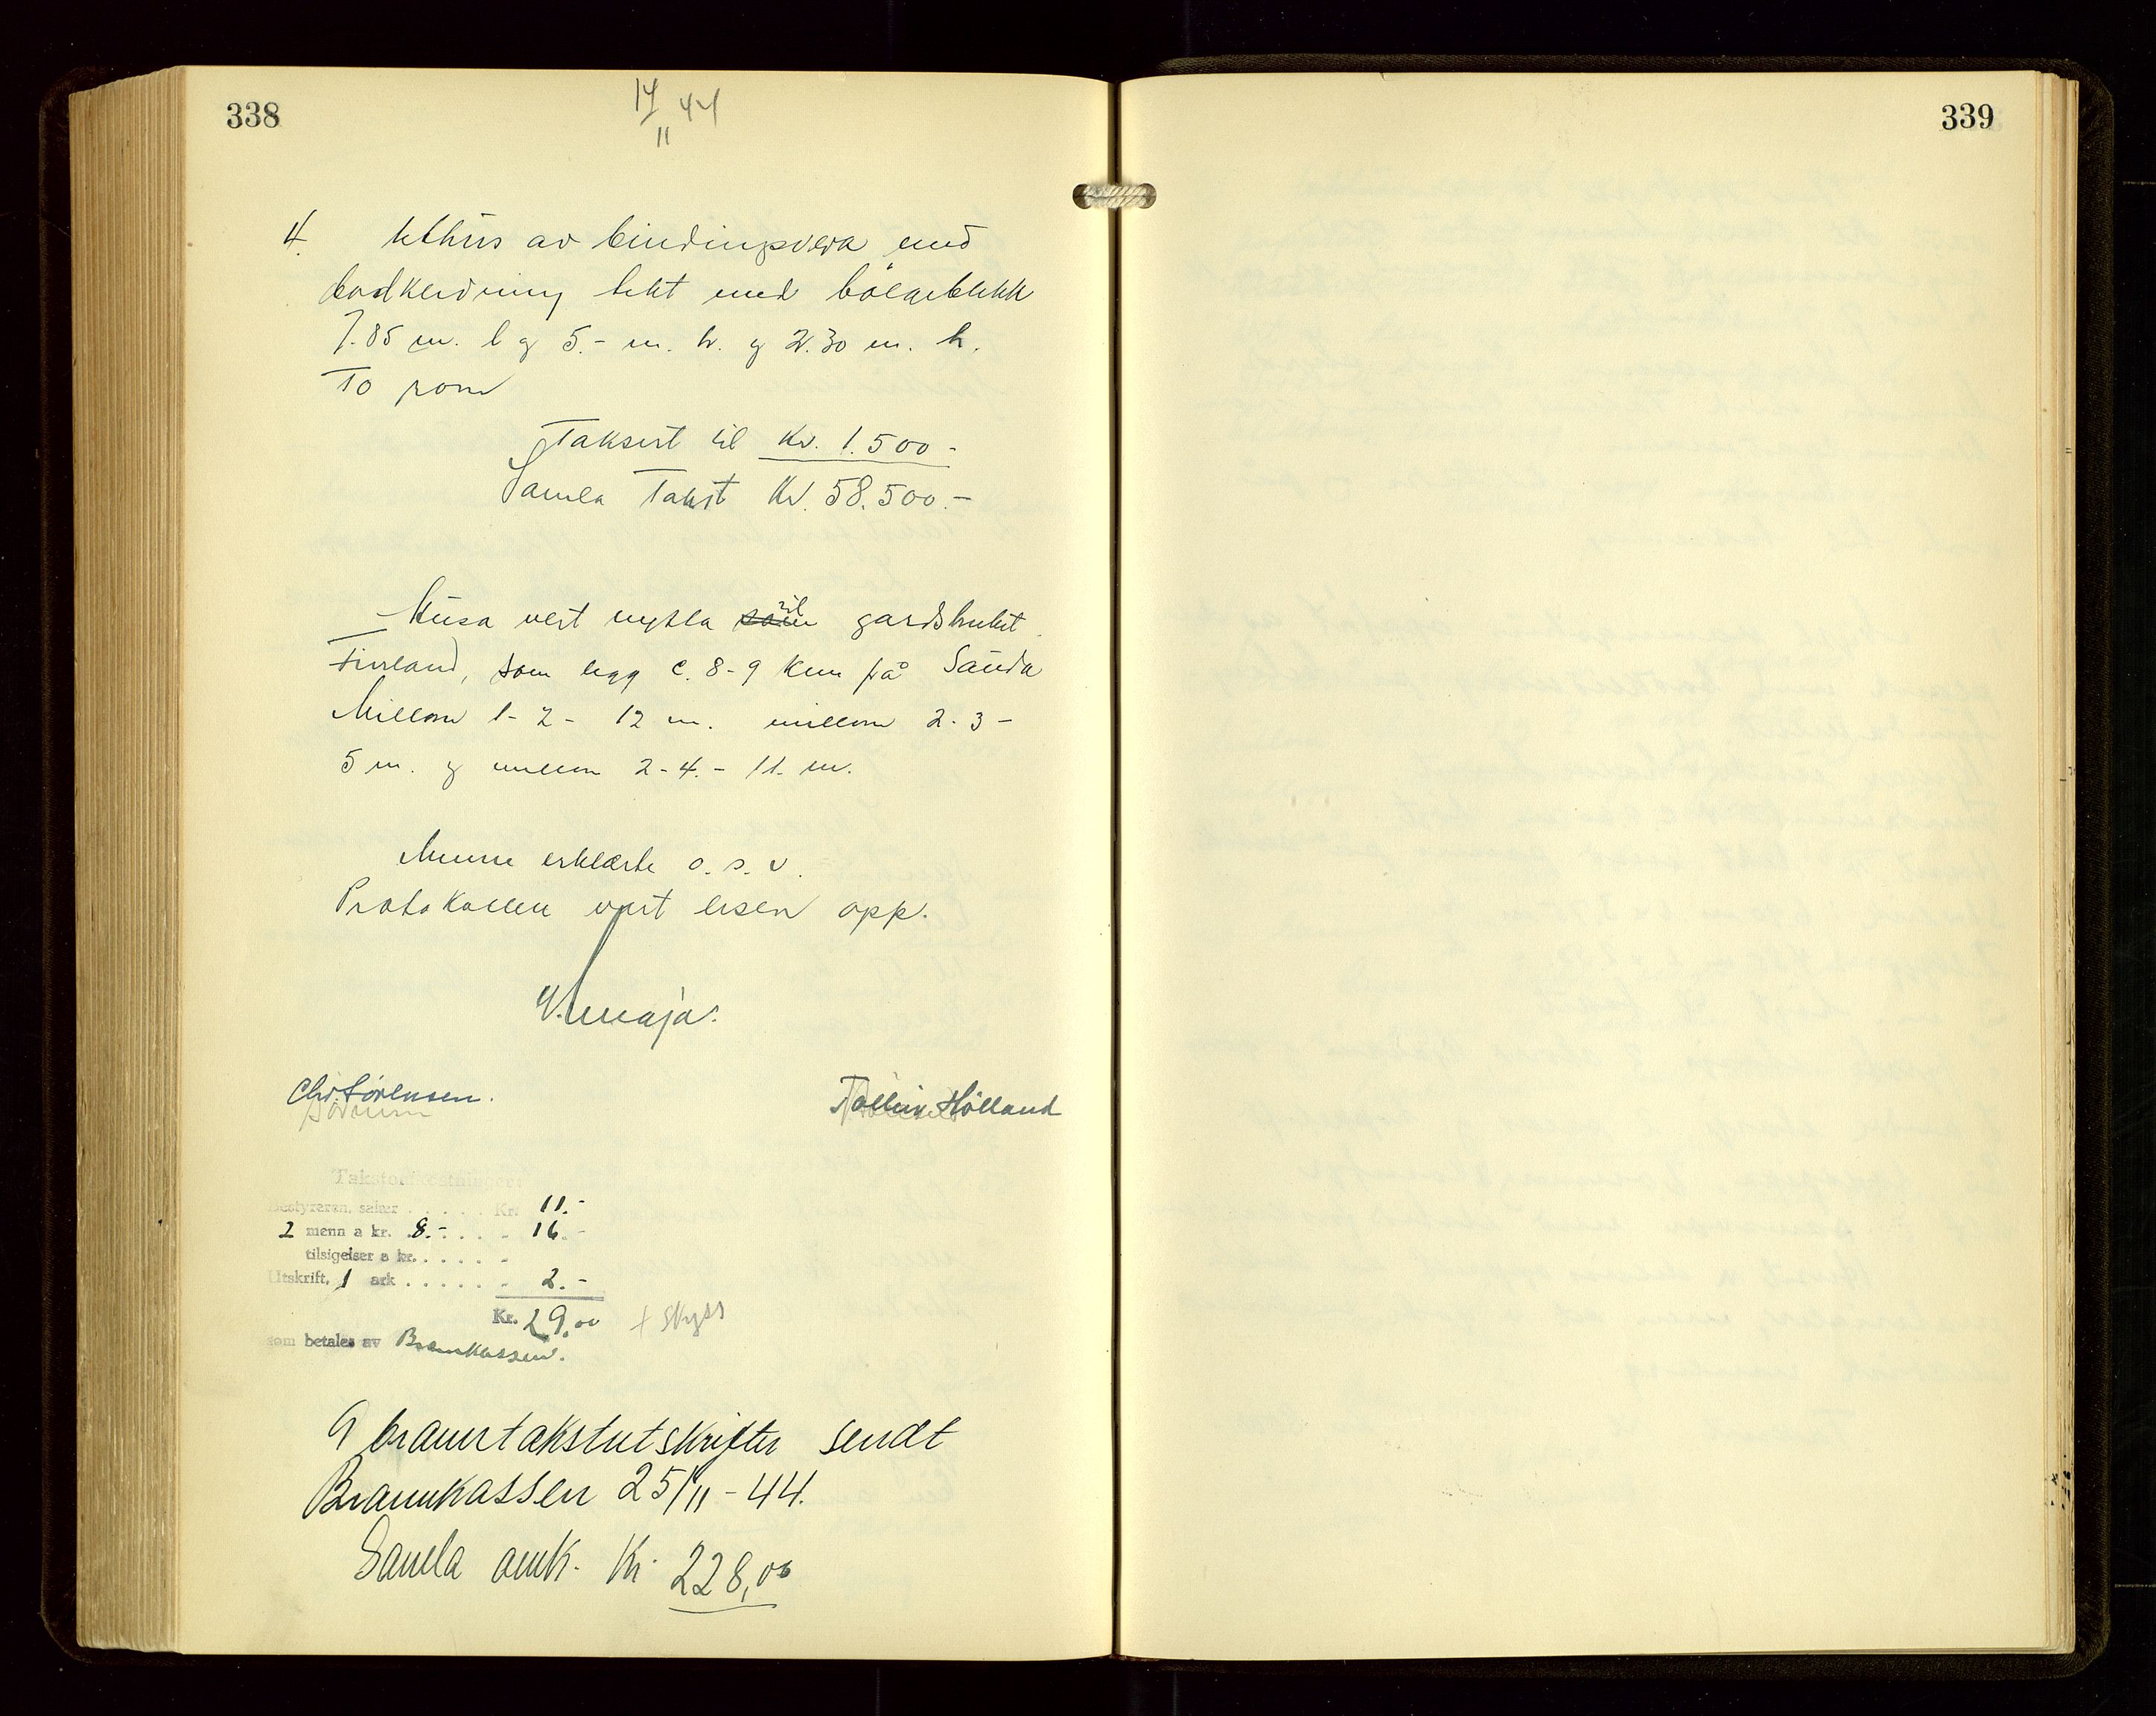 338
14/11 44
4. Uthus av bindingsverk med
bordkledning tekt med bølgeblekk
7.85 m. l og 5.- m. br. og 2.30 m. h.
To rom
Taksert til Kr. 1.500-
Samla Takst Kr. 58.500.-
Husa vert nytta til gardsbruket
som ligg c. 8-9 km frå Sauda
Millom 1-2- 12 m. millom 2-3-
5 m. og millom 2-4.- 11. m.
Menne erklærte o. s. v.
Protokollen vart lesen opp.
Chr. Sørensen.
Sørensen
Tolleiv Hølland
Takstomkostninger:
Bestyreren, salær . . . . . Kr. 11.-
2 menn a kr. 8.- . . . . - 16.-
tilsigelser a kr. . . . . . -
Utskrift, 1 ark . . . . . . - 2.-
Kr. 29,00 + skyss
som betales av Brannkassen.
9 branntakstutskrifter sendt
Brannkassen 25/11-44.
Samla omk. Kr. 228,00
339